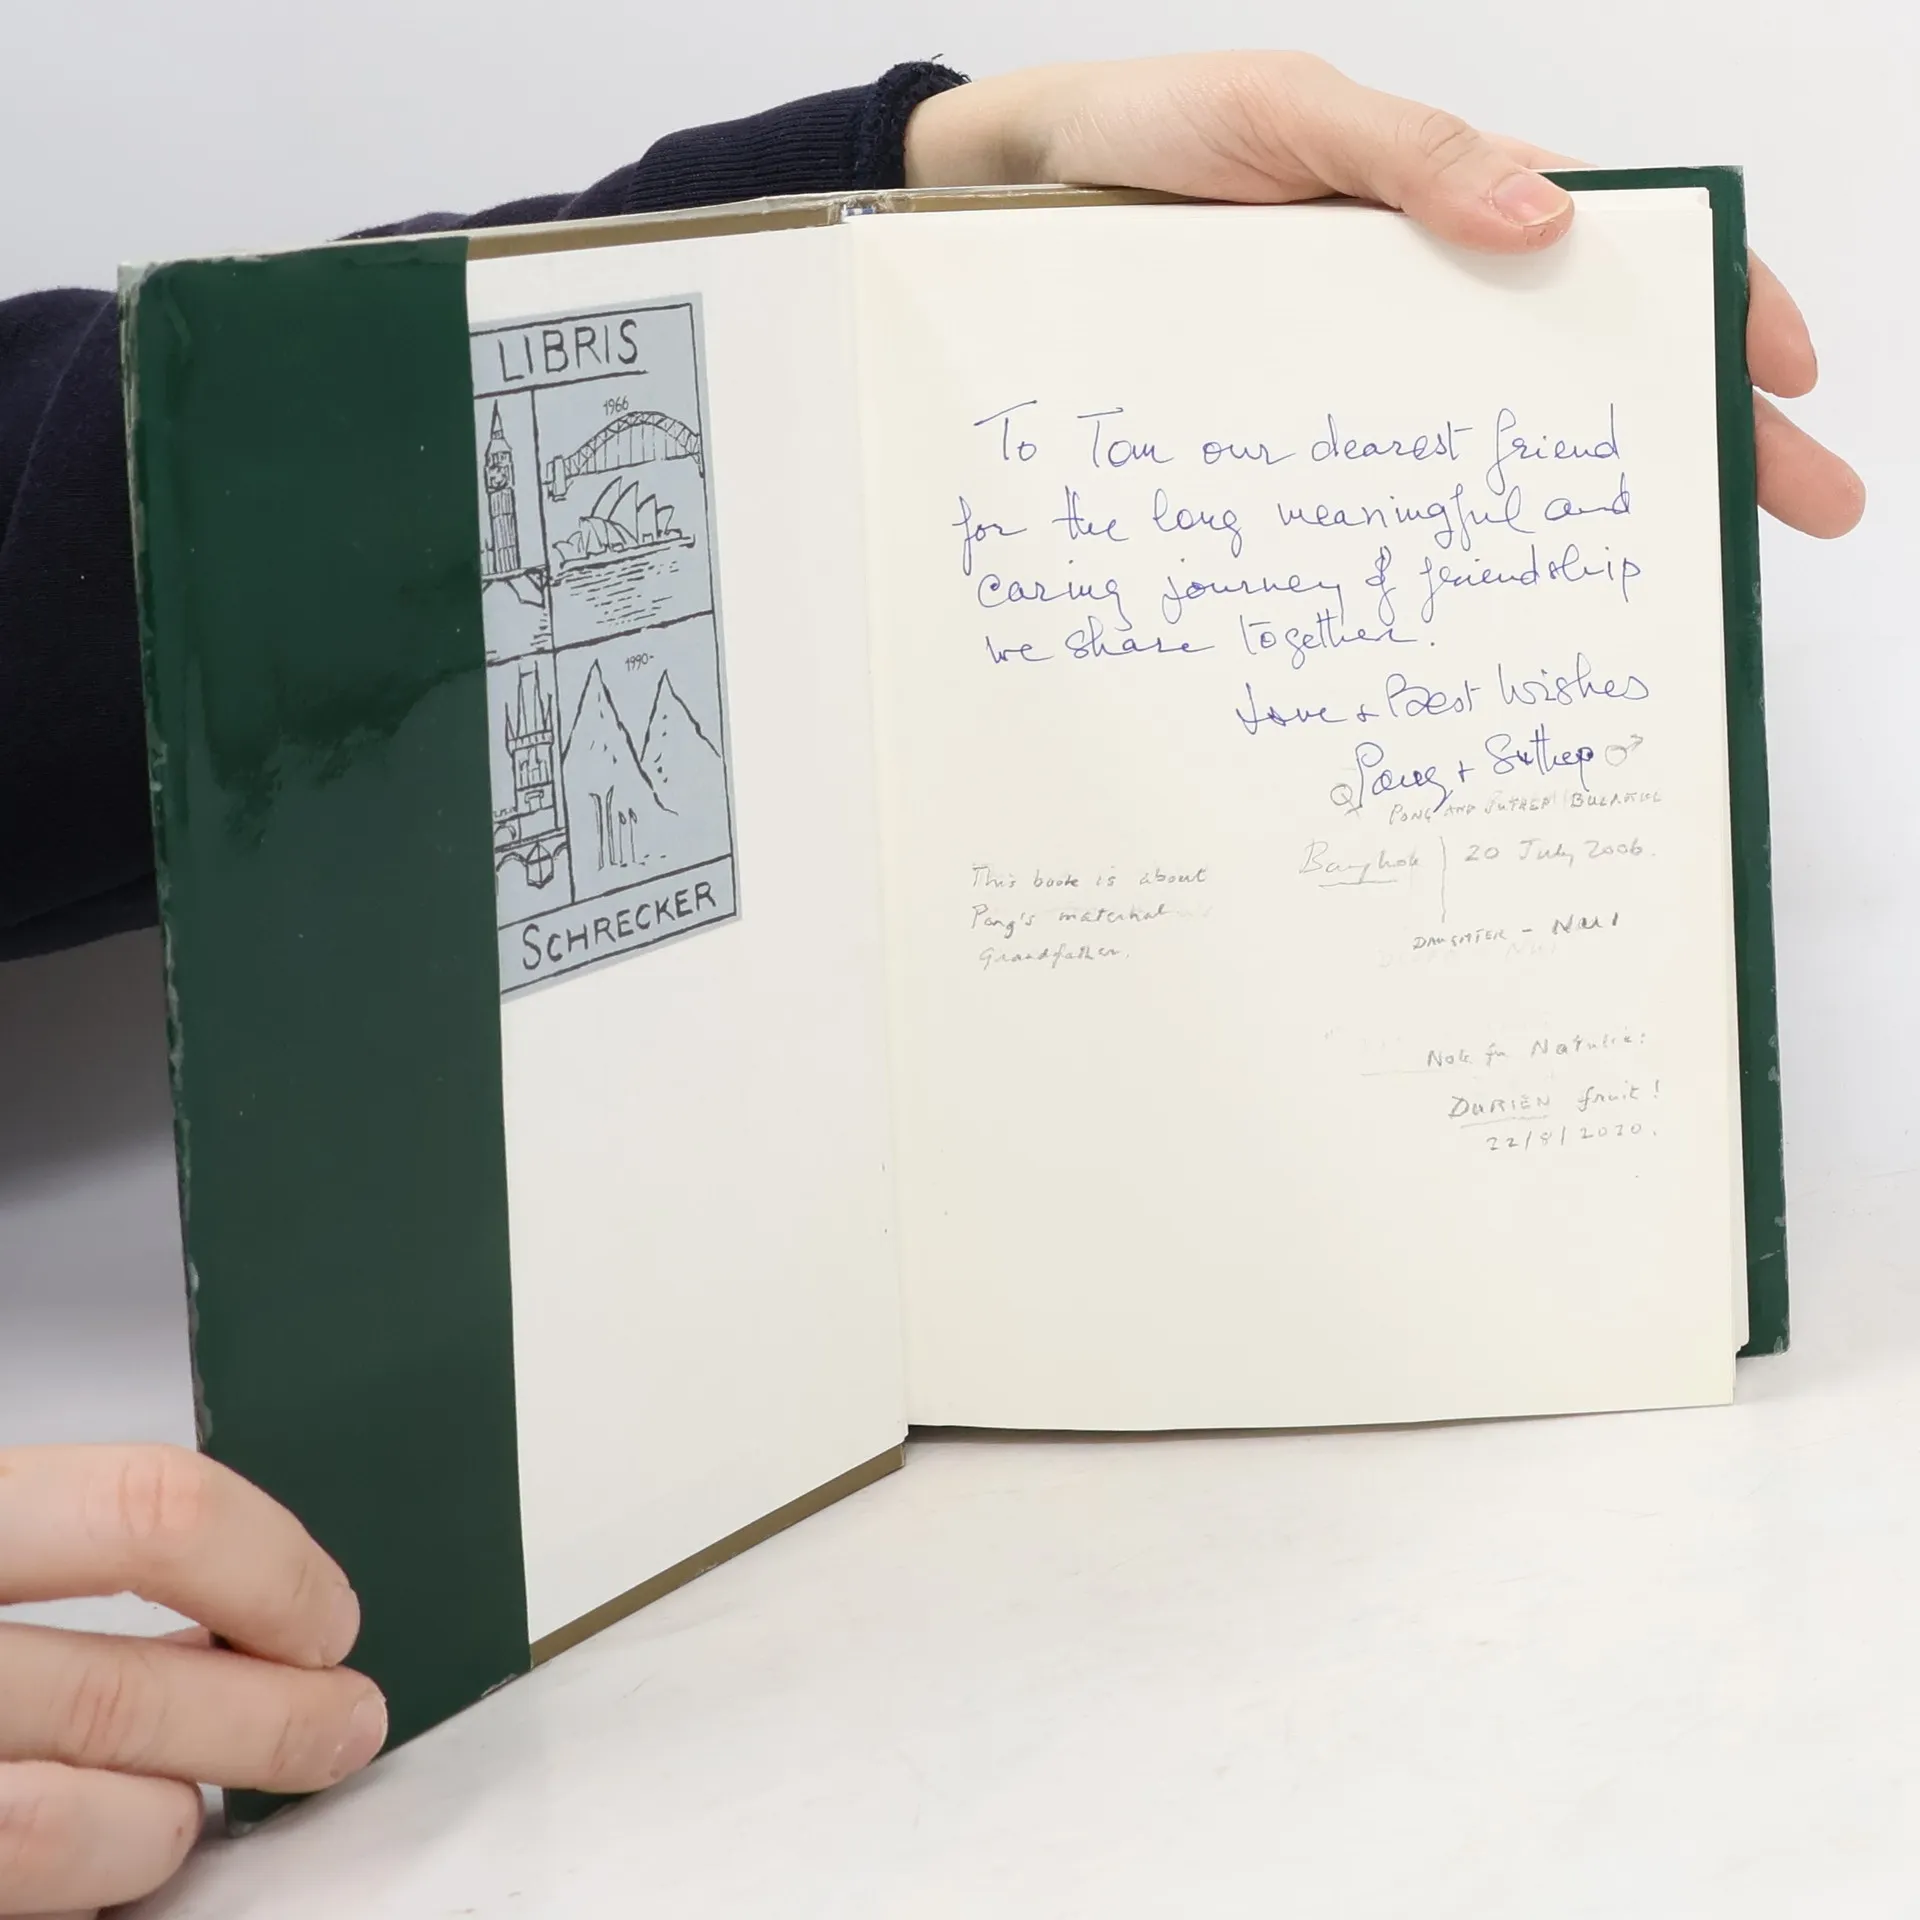 LIBRIS
1966
1990-
SCHRECKER
To Tom our dearest friend
for the long meaningful and
caring journey of friendship
we share together.
Love & Best Wishes
Pong + Suthep ♂
♀
PONG AND SUTHEP
Bangkok | 20 July 2006.
This book is about
Pong's maternal
Grandfather.
DAUGHTER - NUI
Note for Natalie:
DURIEN fruit!
22/8/2020.